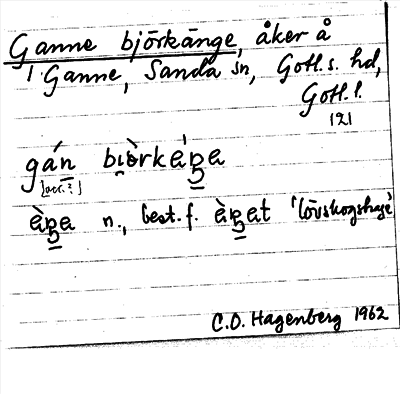 Ganne björkänge, åker å
Ganne, Sanda sn, Gotl. s. hd,
Gotl. l.
121
gán
[acc.?]
n., best. f. 'lövskogshage'
C.O. Hagenberg 1962